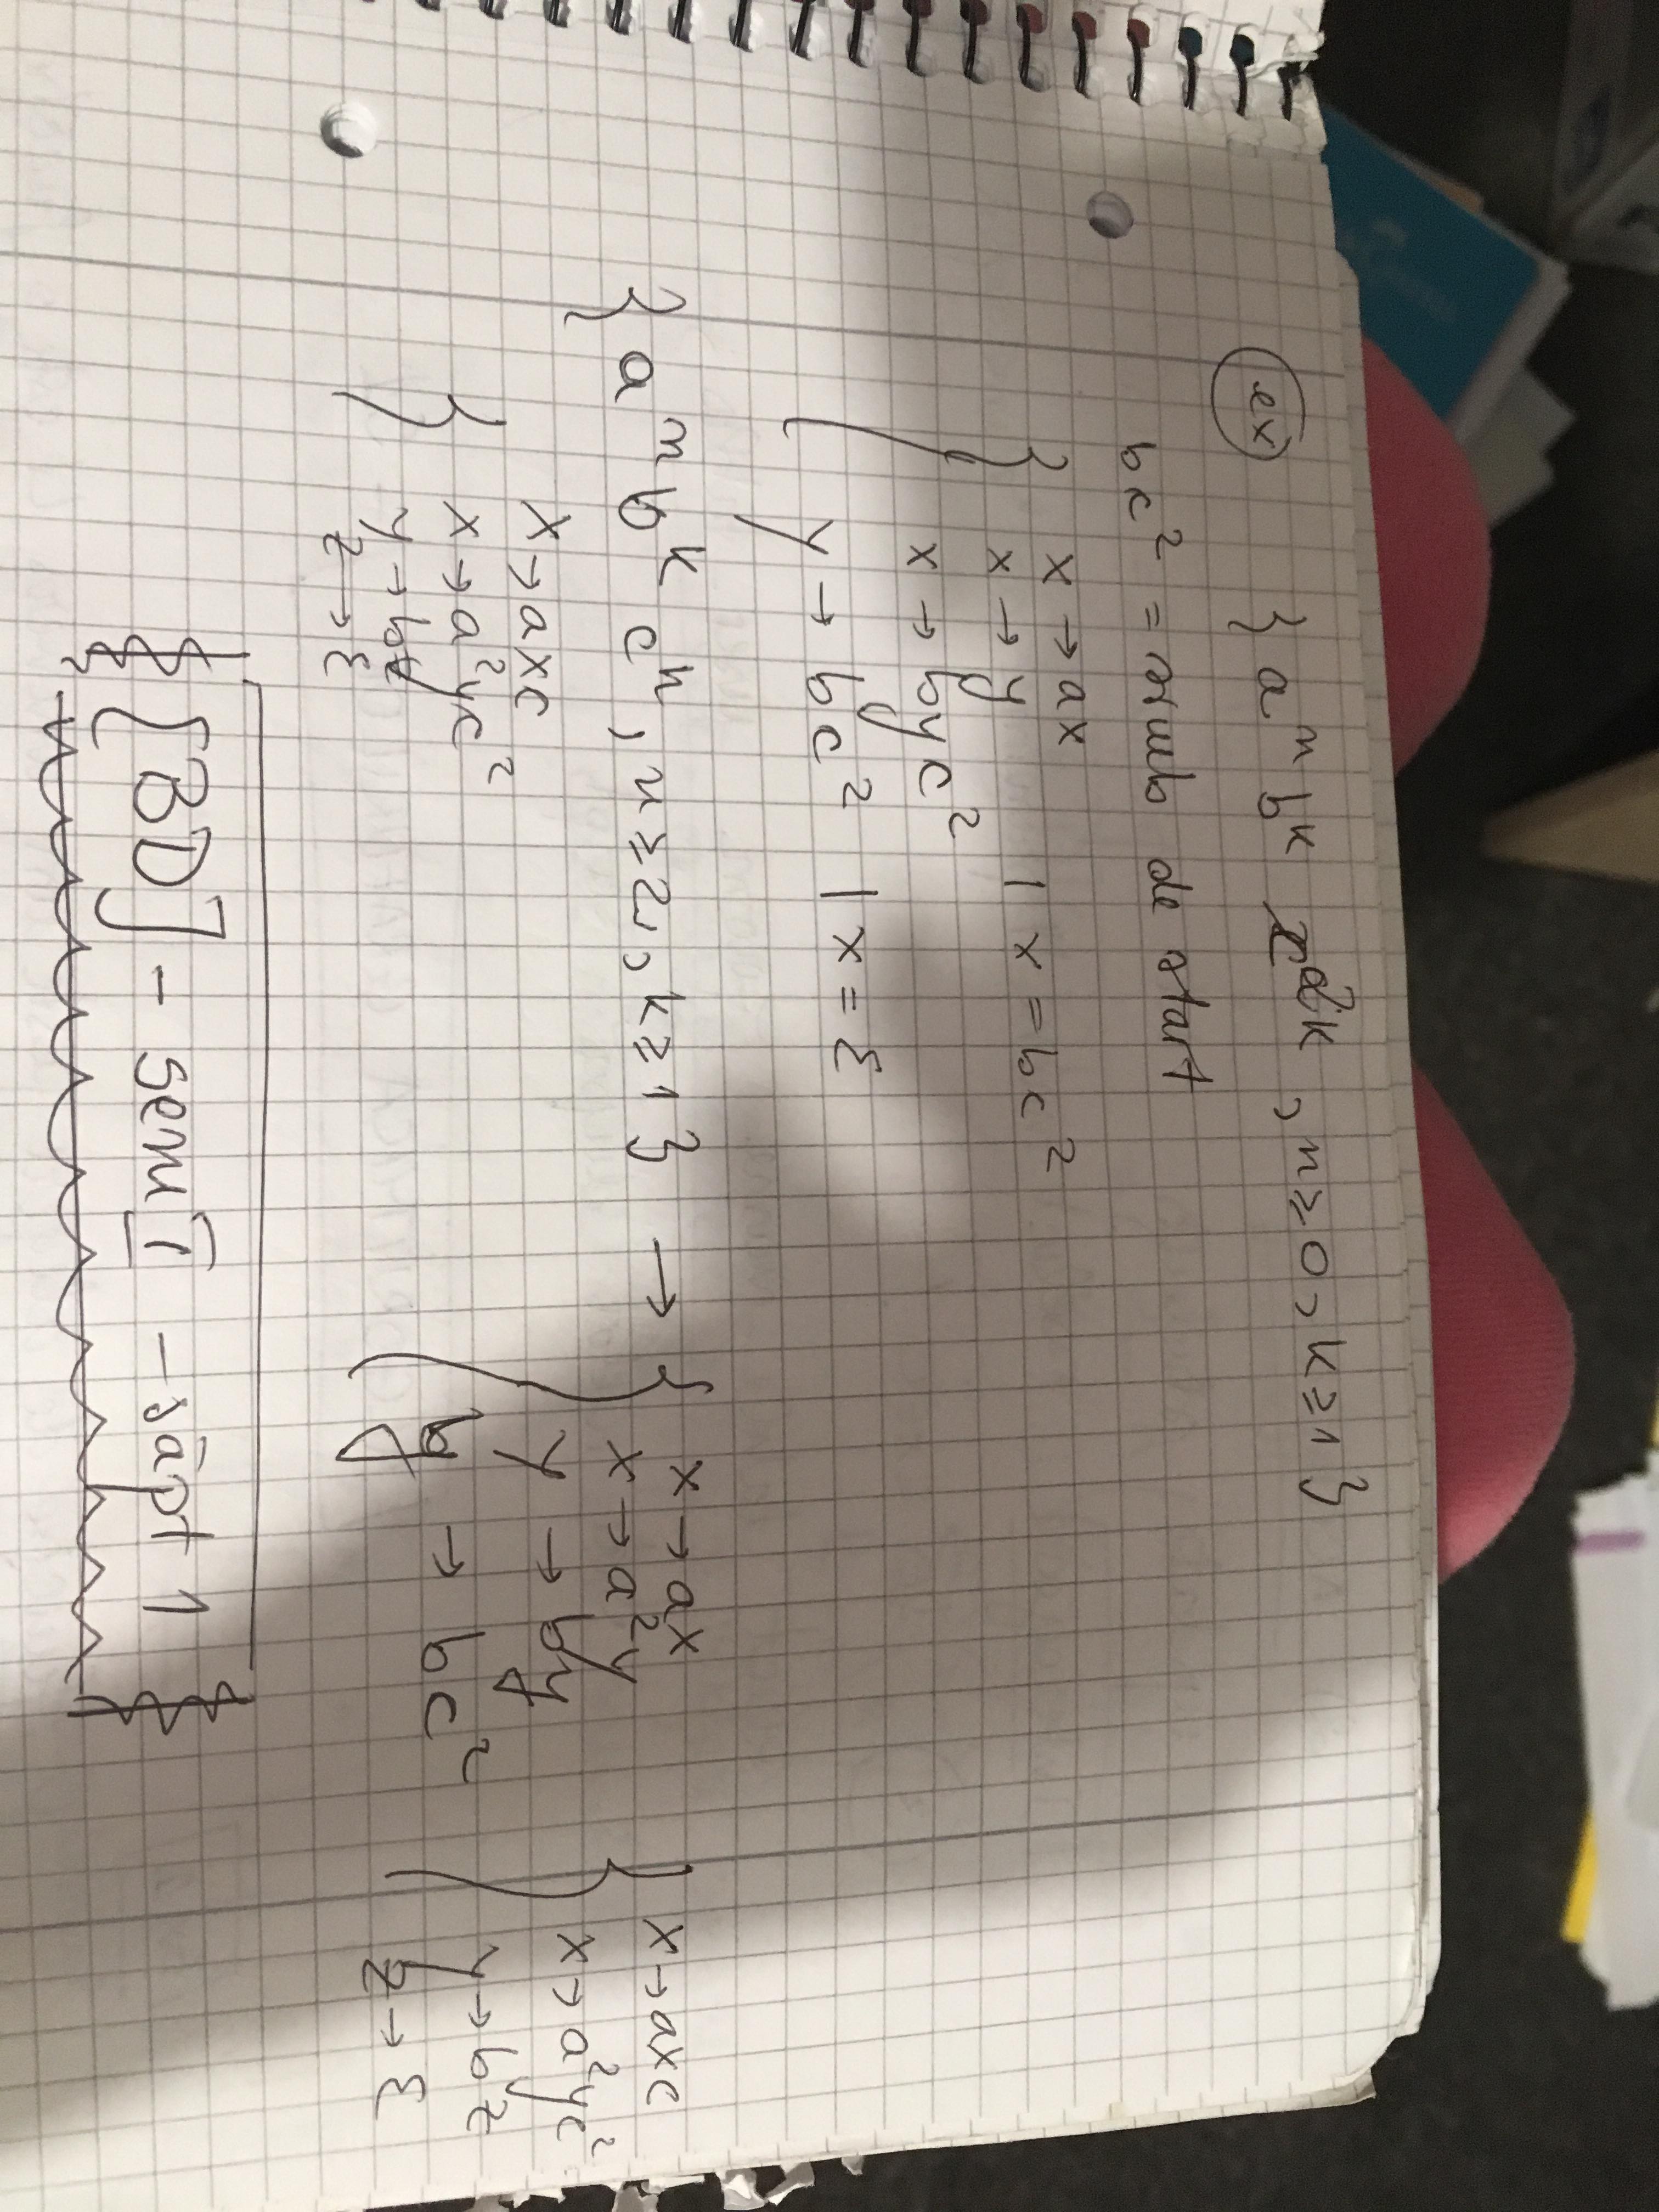 ex { aⁿ bᵏ c²ᵏ , n ≥ 0 , k ≥ 1 }
bc² = simb de start
x → ax
x → y | x = bc²
x → byc²
y → bc² | x = ε
{ aⁿ bᵏ cⁿ , n ≥ 2 , k ≥ 1 } →
x → axc
x → a²yc²
y → bz
z → ε
x → ax
x → a²y
y → by
y → bc²
x → axc
x → a²yc²
y → bz
z → ε
[BD] - sem I - săpt 1